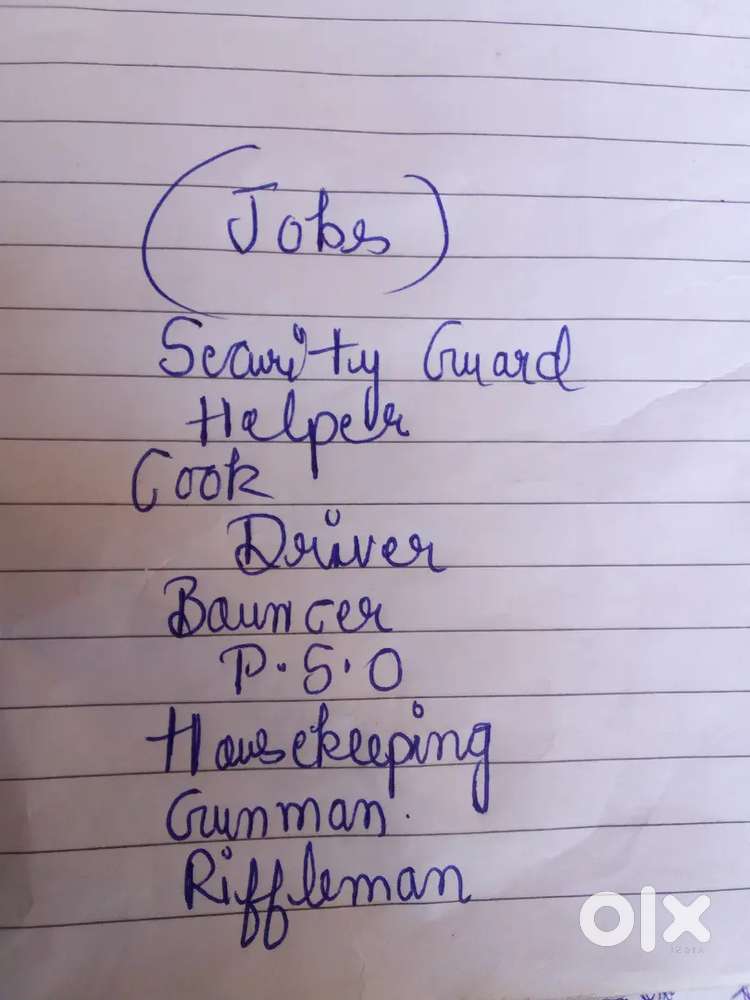 (Jobs)
Security Guard
Helper
Cook
Driver
Bouncer
P.S.O
Housekeeping
Gunman.
Riffleman
olx